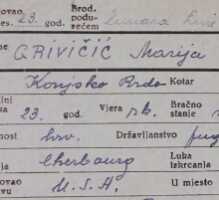 ovao Brod.
es. 23. god. podu-
zećem
me GRIVIČIĆ Marija
Konjsko Brdo Kotar
ini
u 23. god. Vjera rk. Bračno
stanje
nost hrv. Državljanstvo jug
ja Cherbourg Luka
iskrcanja
ovao
vu U.S.A. U mjesto